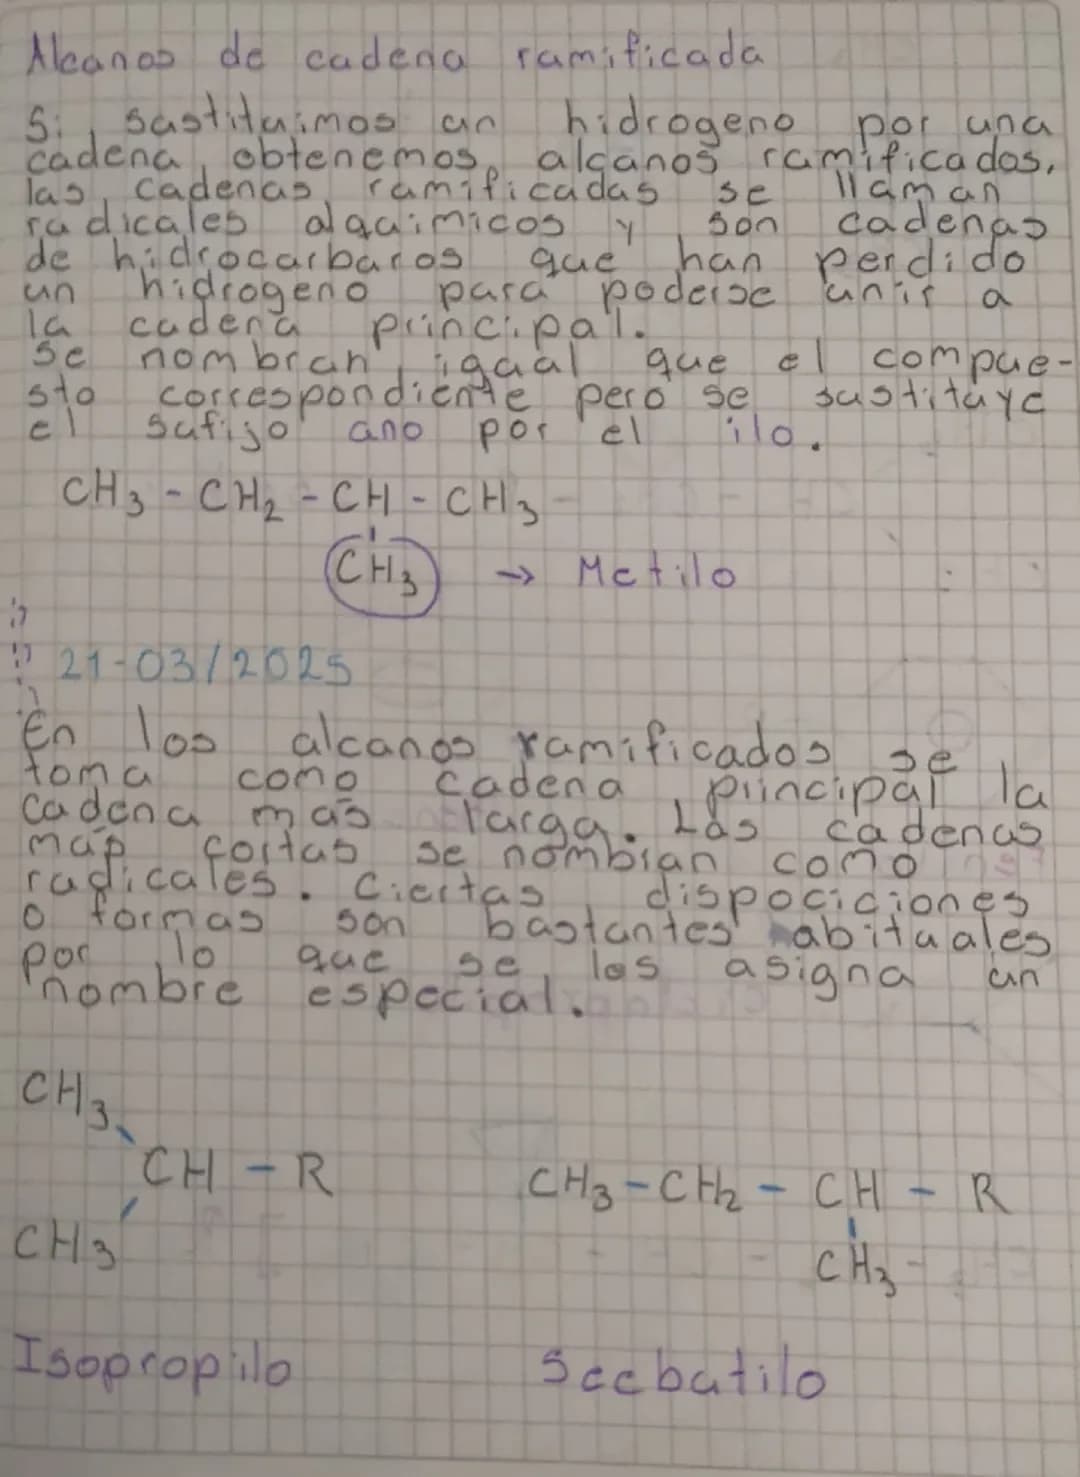 Alcanos de cadena ramificada
Si, sustituimos un hidrogeno por una
cadena, obtenemos, alcanos ramificados,
las, cadenas, ramificadas se llaman
radicales alquimicos y son cadenas
de hidrocarburos que han perdido
un hidrogeno para poderse unir a
la cadena principal.
Se nombran igual que el compue-
sto correspondiente pero se sustituye
el sufijo ano por el ilo.
CH3 - CH2 - CH - CH3
CH3 → Metilo
21-03/2025
En los alcanos ramificados se
toma como cadena principal la
cadena más larga. Las cadenas
más cortas se nombran como
radicales. Ciertas disposiciones
o formas son bastantes abituales
por lo que se les asigna un
nombre especial.
CH3
CH - R
CH3
CH3 - CH2 - CH - R
CH3
Isopropilo
Secbutilo